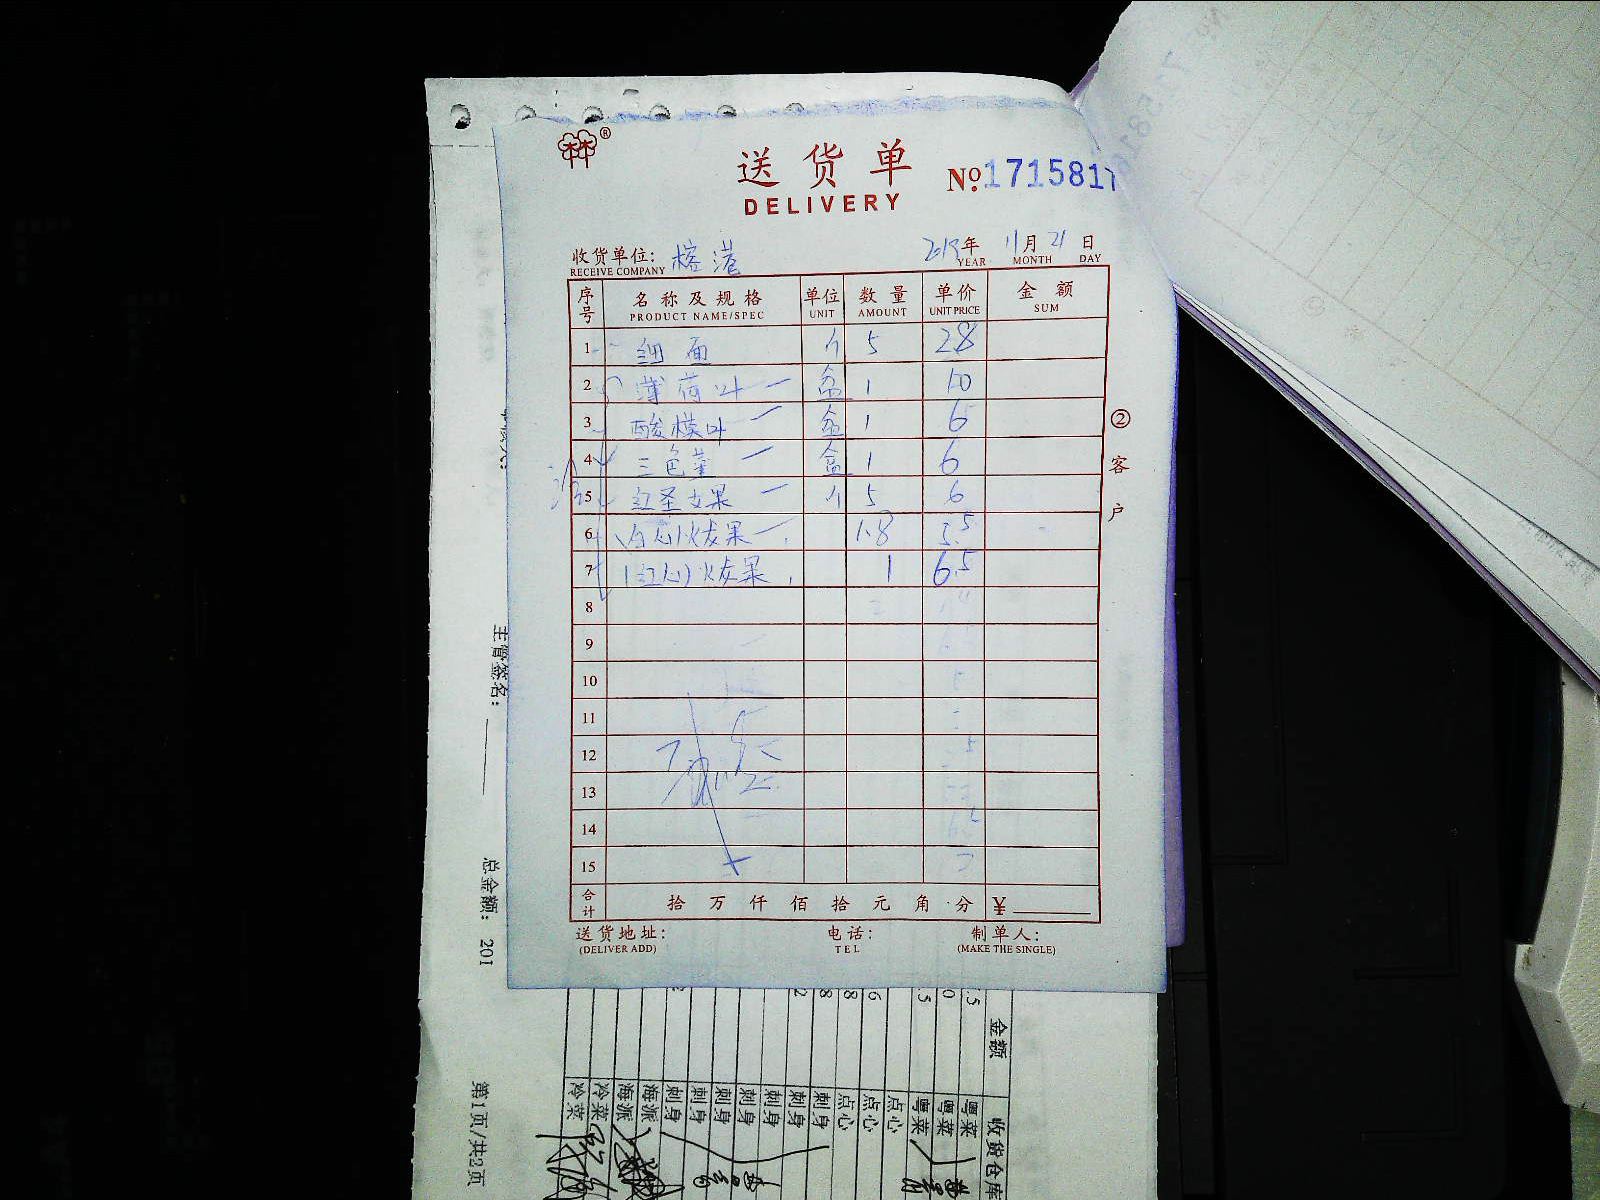 ®
送货单
DELIVERY
№ 1715817
收货单位: 榕港 2019年 11月 21日
RECEIVE COMPANY YEAR MONTH DAY
序号 名称及规格 单位 数量 单价 金额
PRODUCT NAME/SPEC UNIT AMOUNT UNIT PRICE SUM
1 细面 个 5 28
2 薄荷叶 盒 1 10
3 酸模叶 盒 1 6
4 三色堇 盒 1 6
5 红圣女果 个 5 6
6 (白心)火龙果 1.8 5.5
7 (红心)火龙果 1 6.5
8
9
10
11
12
13
14
15
合计 拾 万 仟 佰 拾 元 角 分 ¥
送货地址: 电话: 制单人:
(DELIVER ADD) TEL (MAKE THE SINGLE)
②客户
主管签名:
总金额: 201
第1页/共2页
金额
收货仓库
粤菜
粤菜
粤菜
点心
点心
点心
刺身
刺身
刺身
刺身
刺身
刺身
刺身
海派
海派
冷菜
冷菜